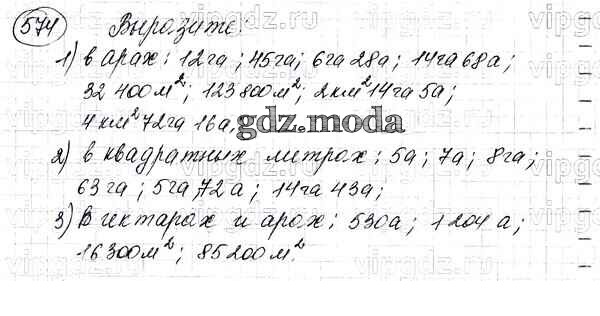 574 Выразите:
1) в арах: 12га; 45га; 6га 28а; 14га 68а;
32 400м²; 123 800м²; 2км² 14га 5а;
4км² 72га 16а,
gdz.moda
2) в квадратных митрах: 5а; 7а; 8га;
63га; 5га, 72а; 14га 43а;
3) В гектарах и арах: 530а; 1204а;
16300м²; 85200м².
vipgdz.com